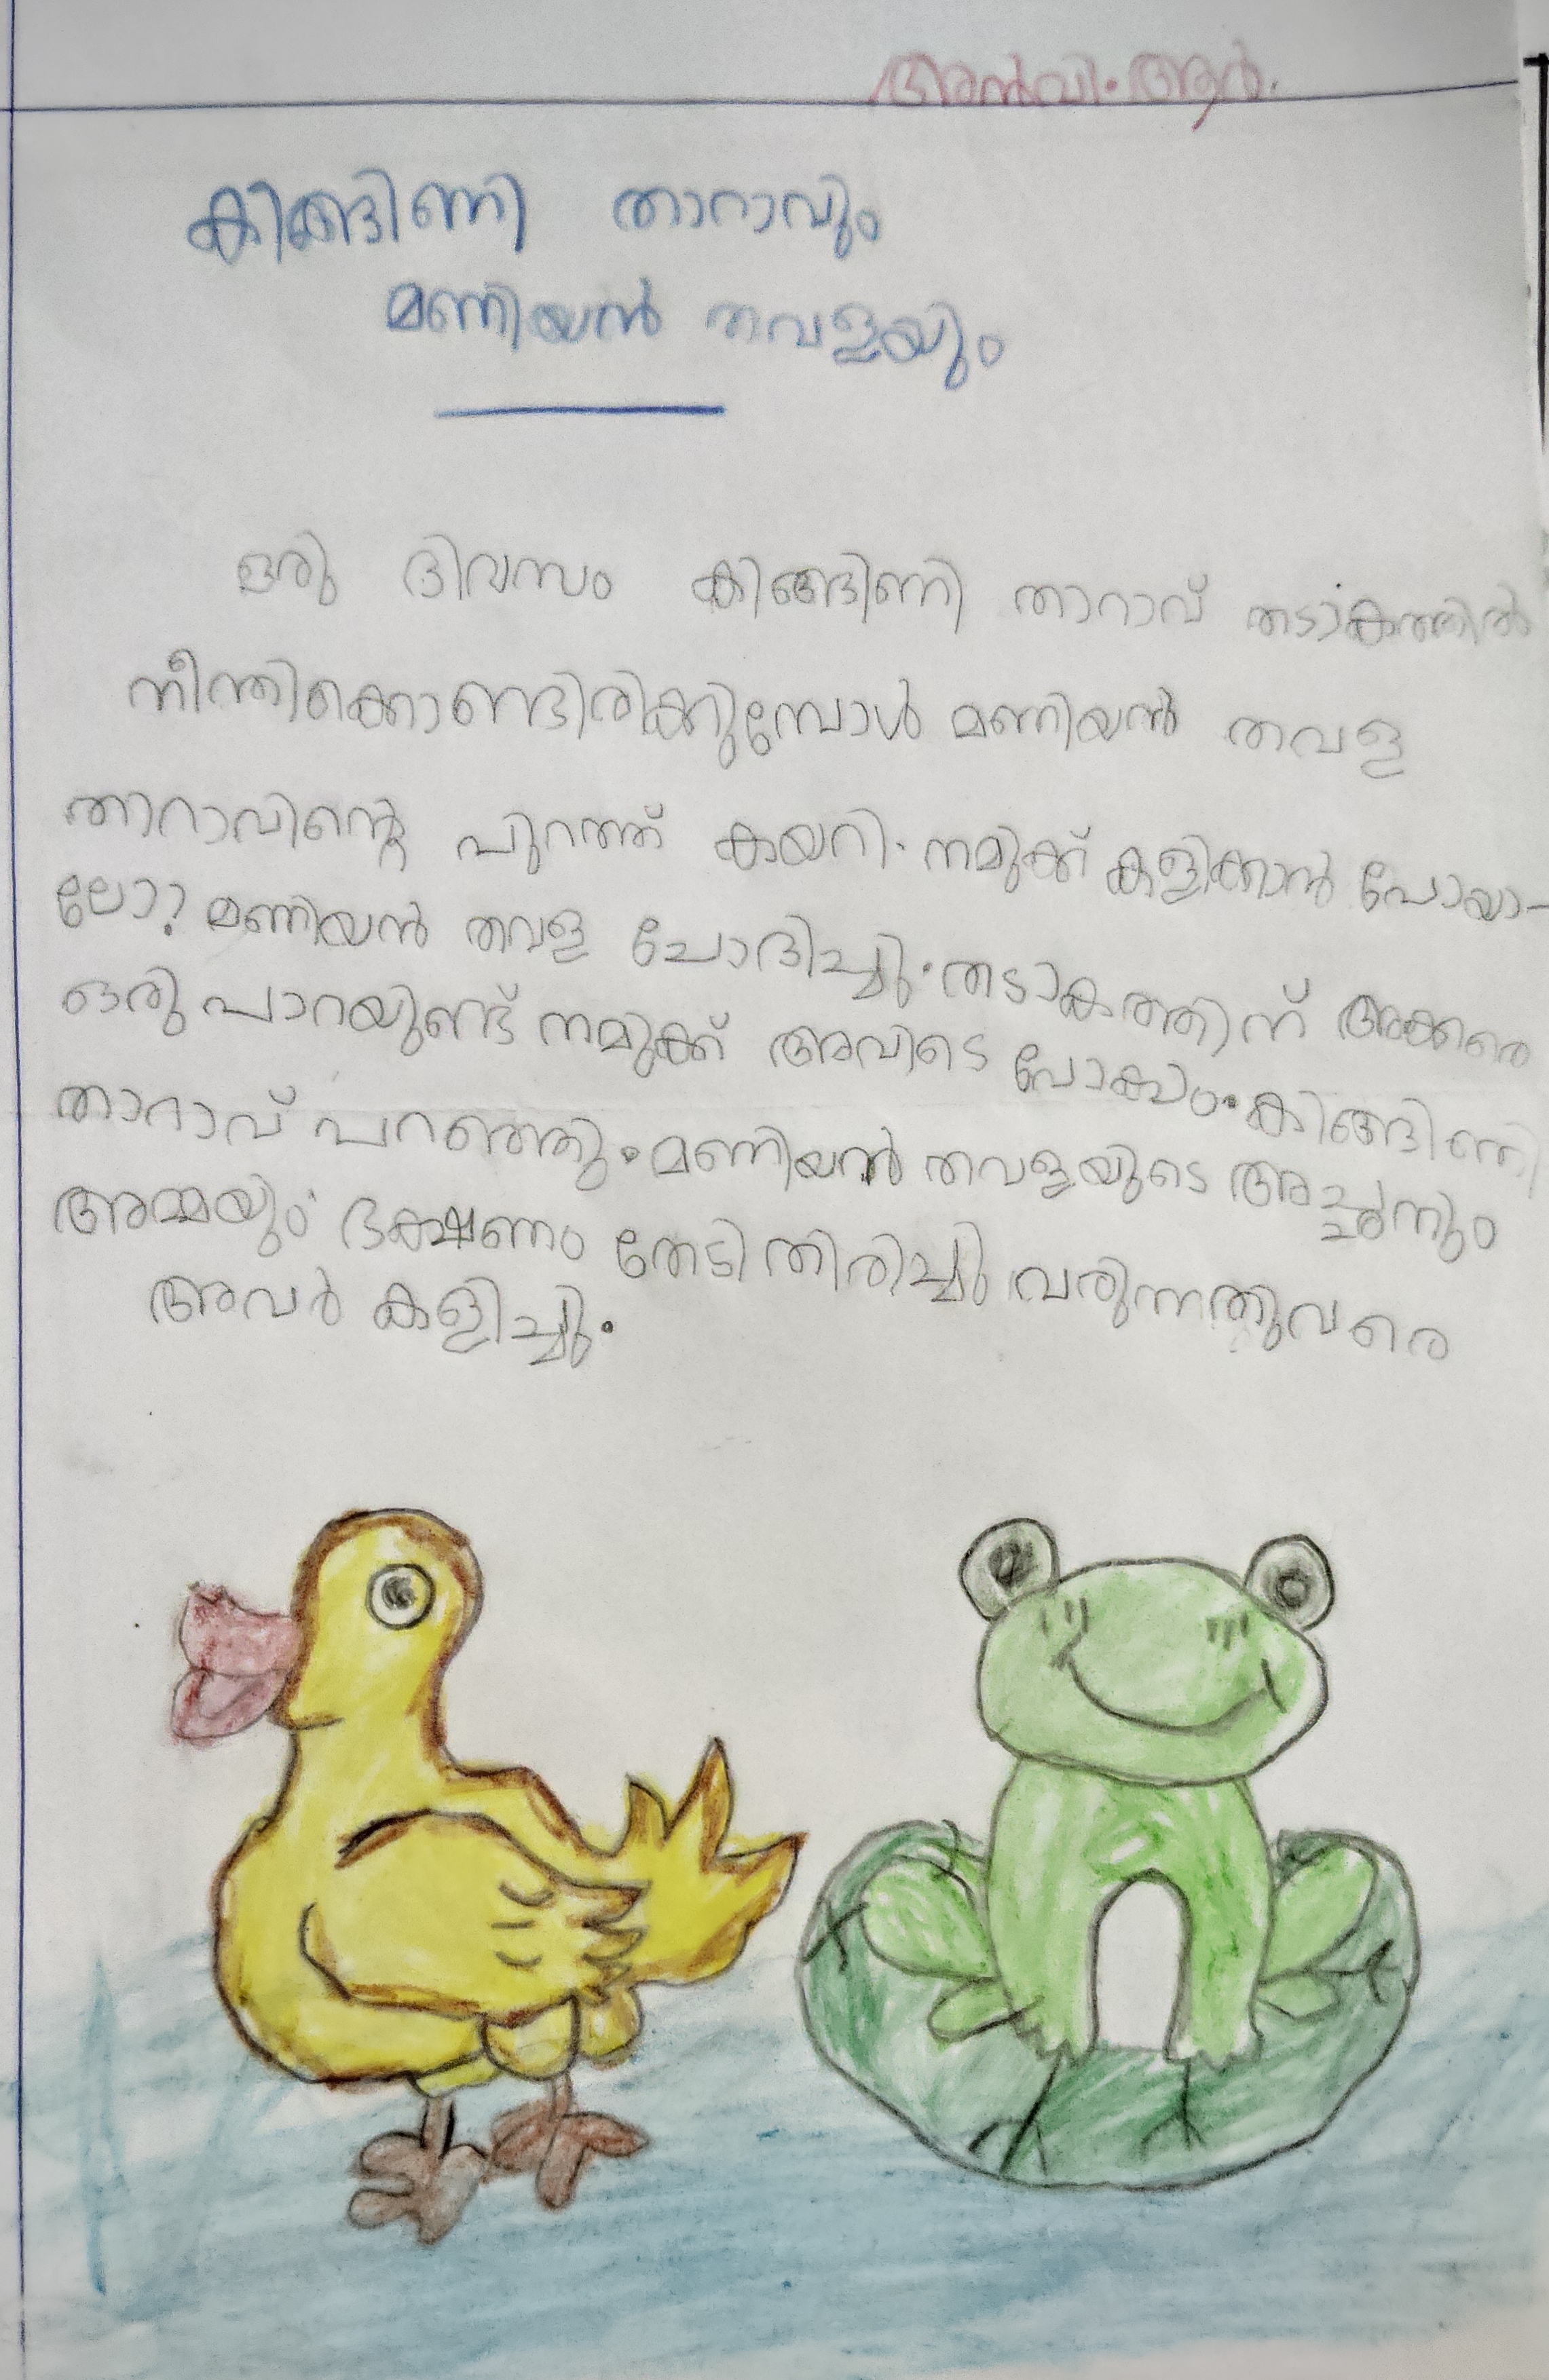 അൻവി. ആർ.
കിങ്ങിണി താറാവും
മണിയൻ തവളയും
ഒരു ദിവസം കിങ്ങിണി താറാവ് തടാകത്തിൽ
നീന്തിക്കൊണ്ടിരിക്കുമ്പോൾ മണിയൻ തവള
താറാവിന്റെ പുറത്ത് കയറി. നമുക്ക് കളിക്കാൻ പോയാ-
ലോ? മണിയൻ തവള ചോദിച്ചു. തടാകത്തിന് അക്കരെ
ഒരു പാറയുണ്ട് നമുക്ക് അവിടെ പോകാം. കിങ്ങിണി
താറാവ് പറഞ്ഞു. മണിയൻ തവളയുടെ അച്ഛനും
അമ്മയും ഭക്ഷണം തേടി തിരിച്ചു വരുന്നതുവരെ
അവർ കളിച്ചു.